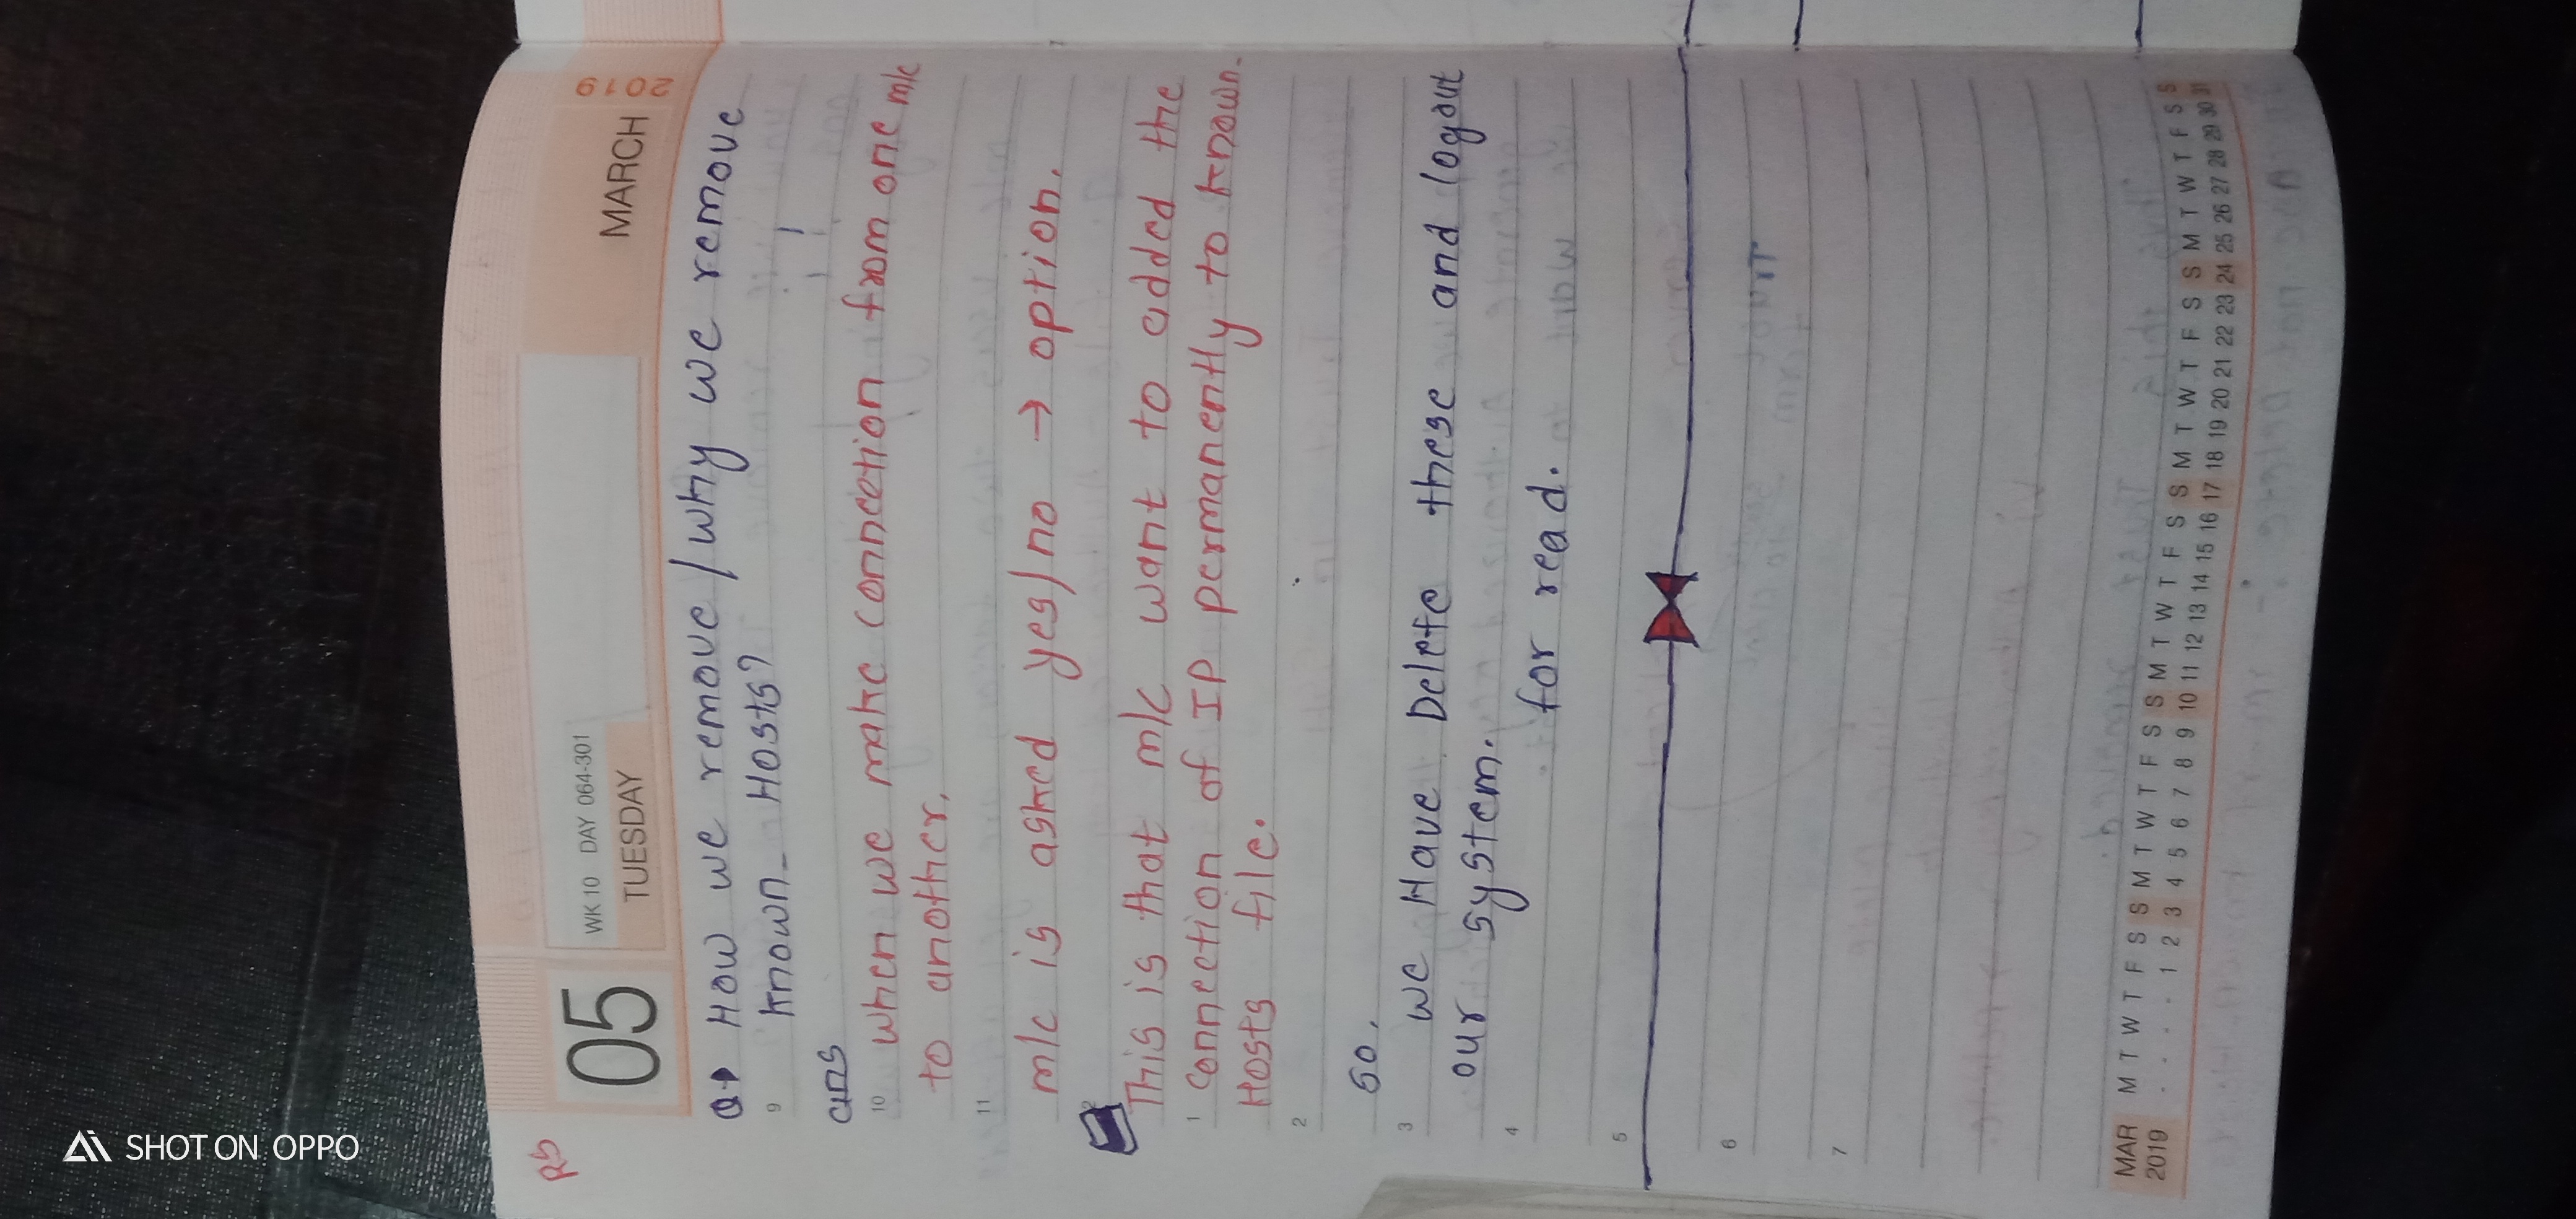 P5
05
WK 10 DAY 064-301
TUESDAY
MARCH
2019
Q→ How we remove / why we remove
9
known_Hosts?
ans
10 when we make connection from one m/c
to another.
11
m/c is asked yes/no → option.
This is that m/c want to added the
1 connection of IP permanently to known-
Hosts file.
2
so,
3 we Have Delete these and logout
our system.
4 for read.
5
6
7
MAR M T W T F S S M T W T F S S M T W T F S S M T W T F S S M T W T F S S
2019 . . . . 1 2 3 4 5 6 7 8 9 10 11 12 13 14 15 16 17 18 19 20 21 22 23 24 25 26 27 28 29 30 31
SHOT ON OPPO